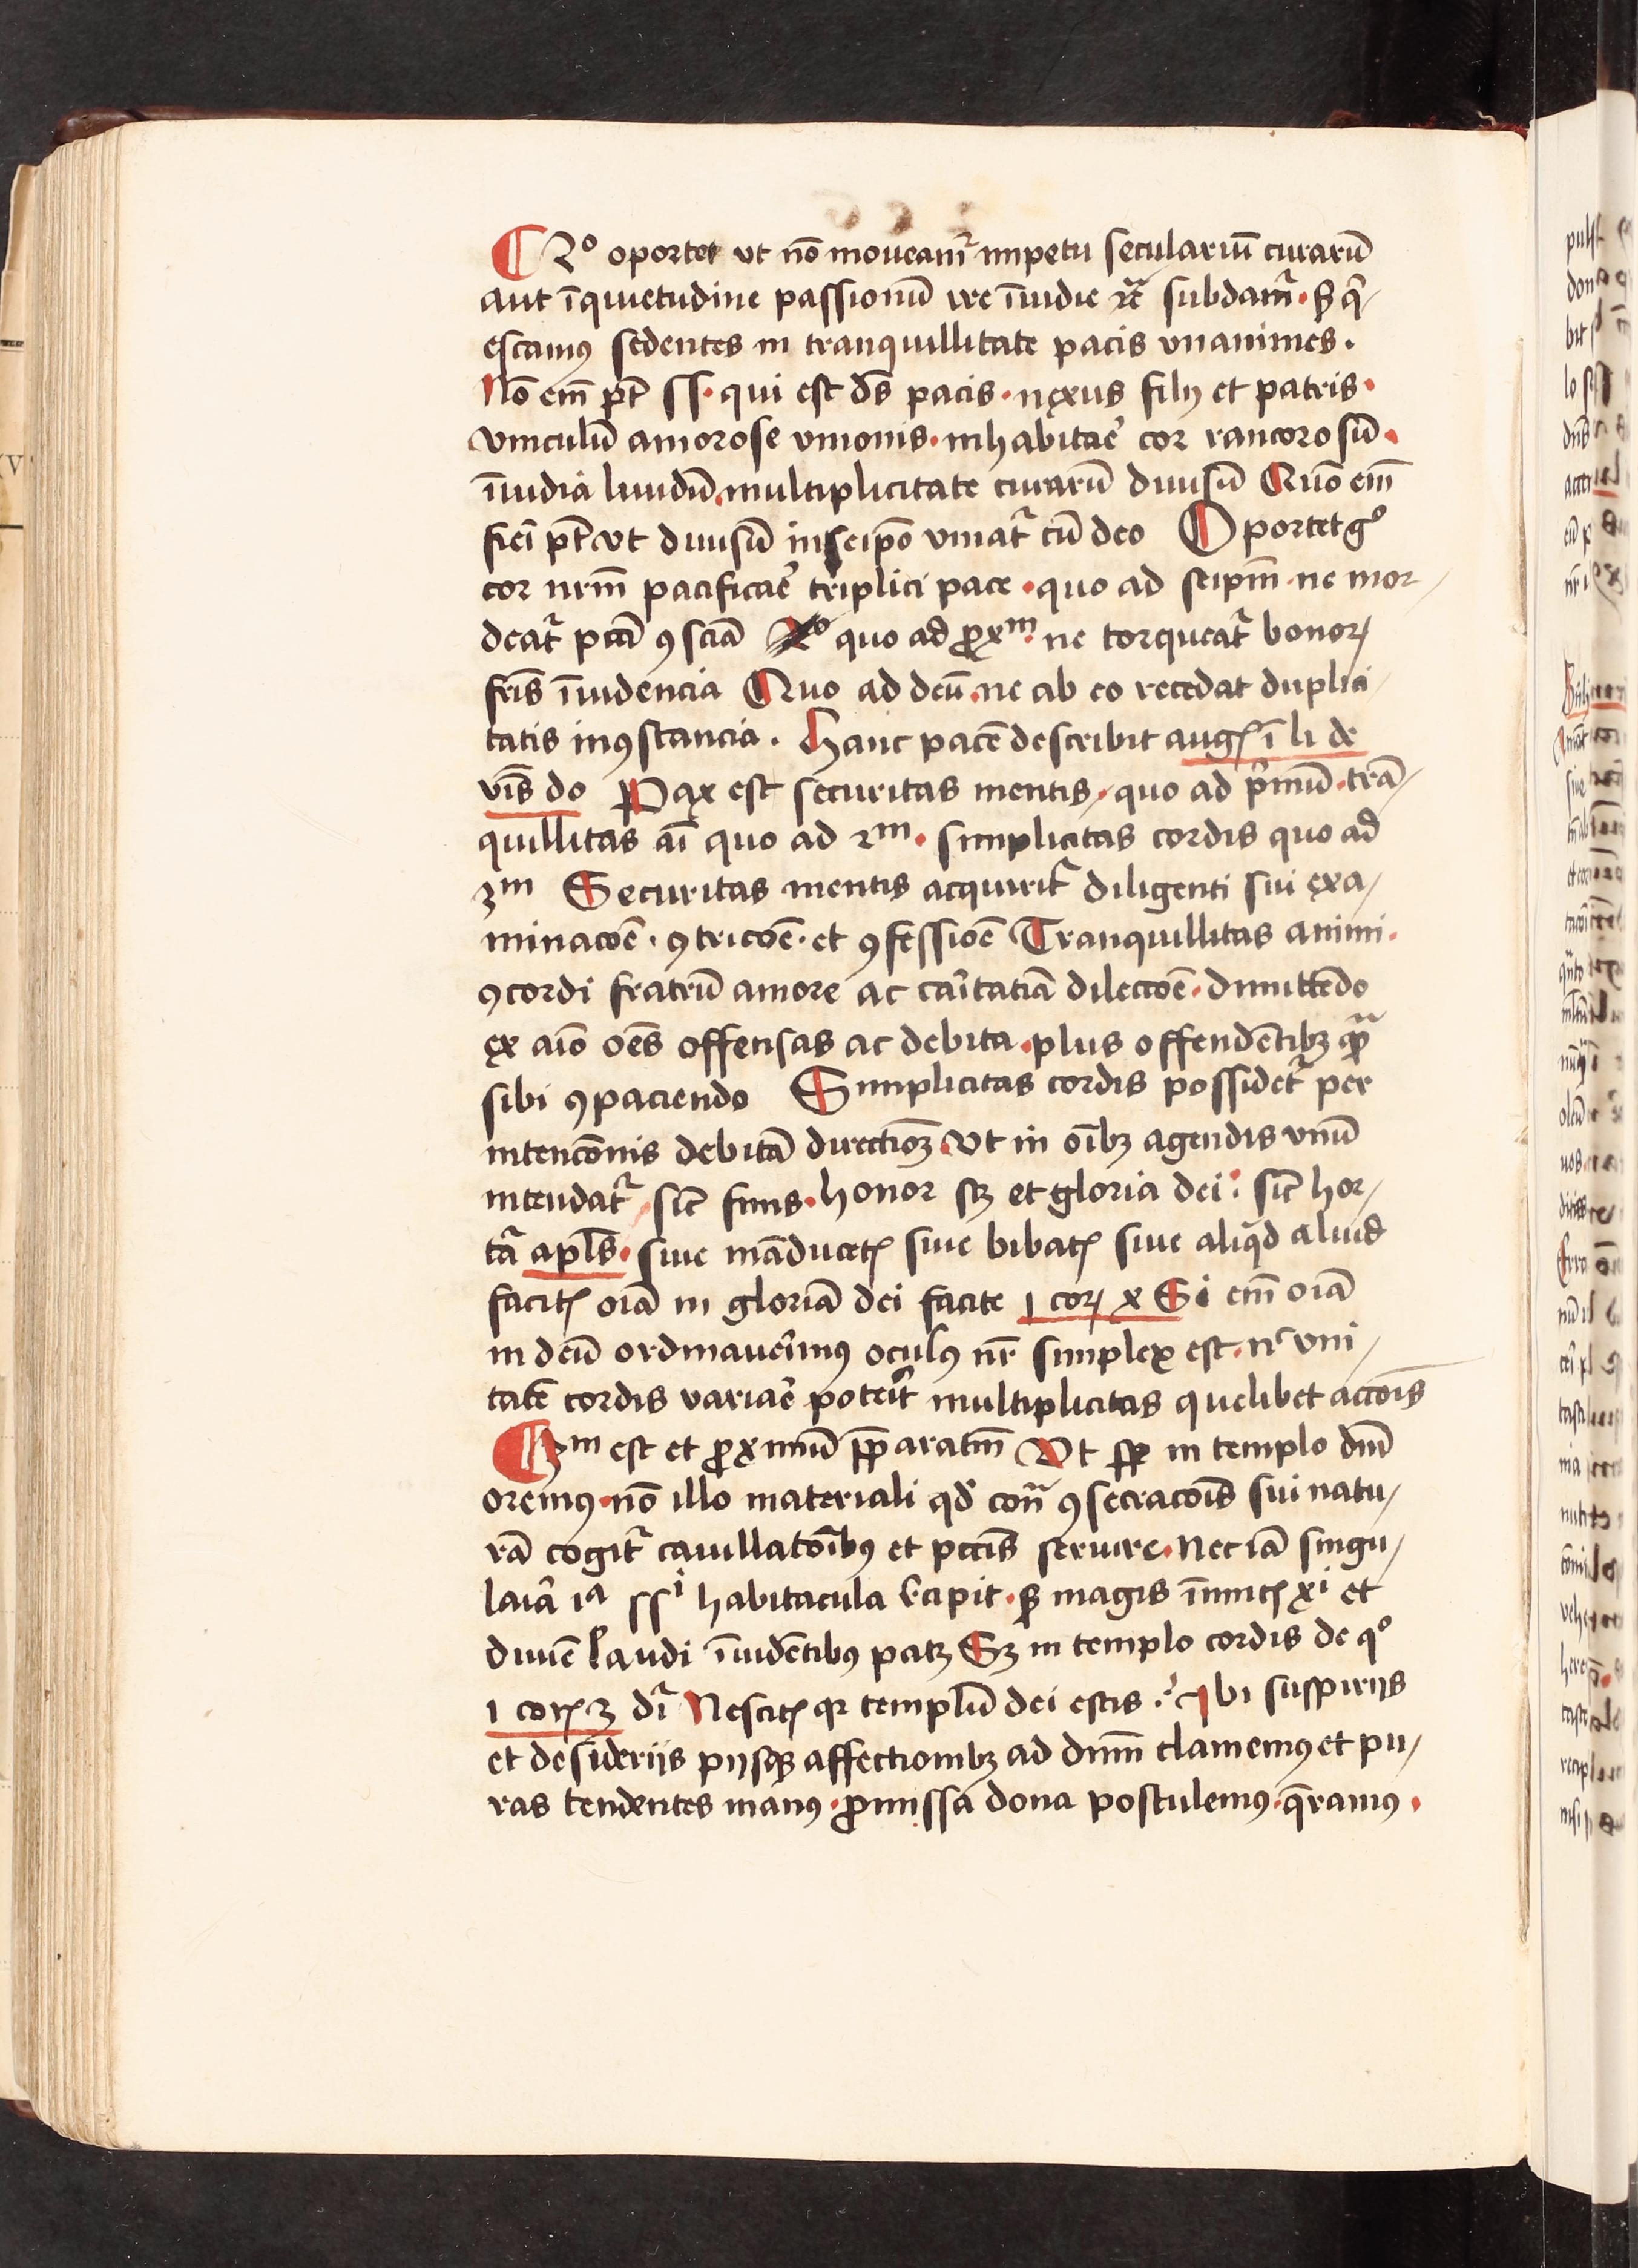 2º oportet vt nō moueamr̄ impetu seculariū curarū
aut īquietudine passionū ire īuidie ⁊c̄ subdamr̄ · sꝫ q̇/
escamꝰ sedentes in tranquillitate pacis vnanimes .
Nō em̄ pt̄ ss · qui est ds̄ pacis · nexus filij et patris ·
vinculū amorose vnionis · inhabitaē cor rancorosū ·
īuidia liuidū multiplicitate curarū diuisū Quō em̄
fieī pt̄ vt diuisū in seipō vniatr̄ cū deo Oportet gº
cor nrm̄ pacificaē triplici pace · quo ad seipm̄ · ne mor/
deatr̄ pctī ꝯsciā 2º quo ad ꝓxᵐ · ne torqueatr̄ bonoꝝ
fris̄ īuidencia Quo ad deū · ne ab eo recedat duplici/
tatis inꝯstancia . Hanc pacē describit augꝰ ī li de
vīs do Pax est securitas mentis · quo ad pͥmū · trā/
quillitas aī quo ad 2ᵐ · simplicitas cordis quo ad
3ᵐ Securitas mentis acquiritr̄ diligenti sui exa/
minacōē · ꝯtricōē · et ꝯfessiōē Tranquillitas animi ·
ꝯcordi fratrū amore ac caritatiā dileccōē · dimittēdo
ex aīo oēs offensas ac debita · plus offendētibꝫ qᷓꝫ
sibi ꝯpaciendo Simplicitas cordis possidetr̄ per
intencōnis debitā directiōꝫ · vt in oībꝫ agendis vnū
intendatr̄ sic̄ finis · honor sꝫ et gloria dei : sic̄ hor/
tā apls̄ · siue māducetꝭ siue bibatꝭ siue aliqd̄ aliud
facitꝭ oīa in gloriā dei facite 1 coꝝ x Si em̄ oīa
in deū ordinauerimꝰ oculꝰ nr̄ simplex est · nᶜ vni/
tatē cordis variaē poteīt multiplicitas quelibet accōis
3ᵐ est et ꝓximū p̄paratm̄ Vt sꝑ in templo dnī
oremꝰ · nō illo materiali qd̄ con̄ ꝯsecracōis sui natu/
rā cogitr̄ cauillatōibꝰ et pctis̄ seruire · Nec iā singu/
laiā iᵃ ssⁱ habitacula recipit · sꝫ magis īimicꝭ xⁱ et
diuīe laudi īuidētibꝰ patꝫ Sꝫ in templo cordis de qº
1 coꝝ 3 dr̄ Nescitꝭ qꝛ templū dei estis ? Ibi suspirijs
et desiderijs pijsqꝫ affectionibꝫ ad dnm̄ clamemꝰ et pu/
ras tendentes manꝰ · ꝓmissa dona postulemꝰ · q̄ramꝰ ·